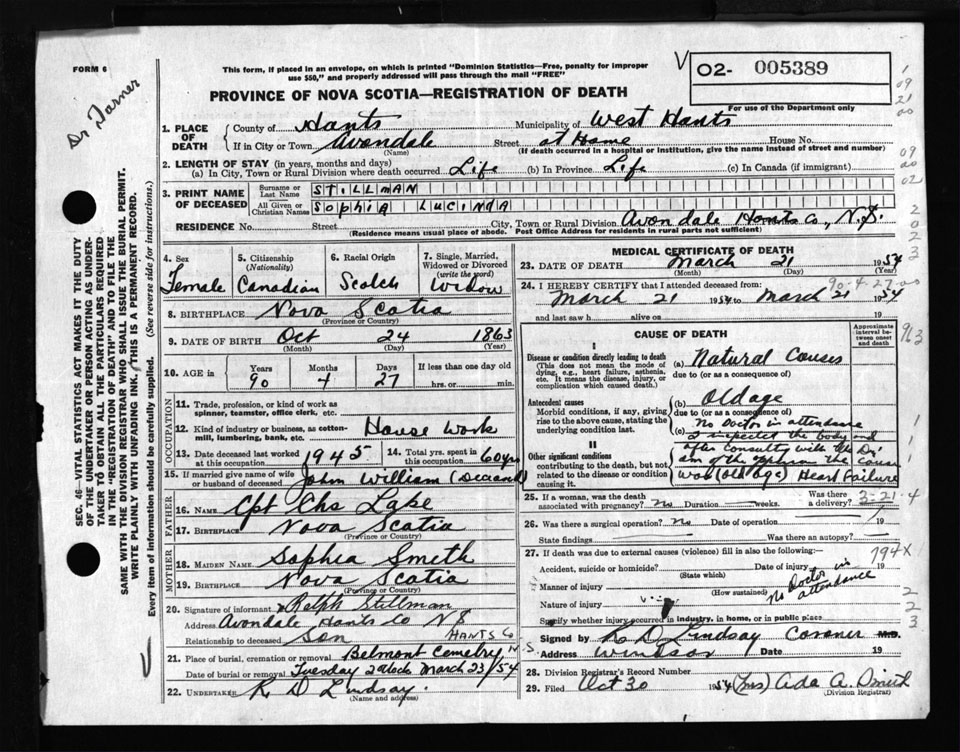 FORM 6
This form, if placed in an envelope, on which is printed "Dominion Statistics—Free, penalty for improper
use $50," and properly addressed will pass through the mail "FREE"
PROVINCE OF NOVA SCOTIA—REGISTRATION OF DEATH
V
O2- 005389
For use of the Department only
Dr Tarner
1. PLACE OF DEATH
County of Hants Municipality of West Hants
If in City or Town Avondale Street at Home House No.
(Name) (If death occurred in a hospital or institution, give the name instead of street and number)
2. LENGTH OF STAY (in years, months and days)
(a) In City, Town or Rural Division where death occurred Life (b) In Province Life (c) In Canada (if immigrant)
3. PRINT NAME OF DECEASED
Surname or Last Name STILLMAN
All Given or Christian Names SOPHIA LUCINDA
RESIDENCE No. Street City, Town or Rural Division Avondale Hants Co, N.S.
(Residence means usual place of abode. Post Office Address for residents in rural parts not sufficient)
4. Sex Female
5. Citizenship (Nationality) Canadian
6. Racial Origin Scotch
7. Single, Married, Widowed or Divorced (write the word) Widow
8. BIRTHPLACE Nova Scotia
(Province or Country)
9. DATE OF BIRTH Oct 24 1863
(Month) (Day) (Year)
10. AGE Years 90 Months 4 Days 27 If less than one day old hrs. or min.
OCCUPATION
11. Trade, profession, or kind of work as spinner, teamster, office clerk, etc.
12. Kind of industry or business, as cotton-mill, lumbering, bank, etc. House Work
13. Date deceased last worked at this occupation 1945
14. Total yrs. spent in this occupation 60 yrs
15. If married give name of wife or husband of deceased John William (Deceased)
FATHER
16. NAME Cpt Chs Lake
17. BIRTHPLACE Nova Scotia
(Province or Country)
MOTHER
18. MAIDEN NAME Sophia Smith
19. BIRTHPLACE Nova Scotia
(Province or Country)
20. Signature of informant x Ralph Stillman
Address Avondale Hants Co N S
Relationship to deceased Son
HANTS Co
21. Place of burial, cremation or removal Belmont Cemetry N.S.
Date of burial or removal Tuesday 2 oclock March 23/54
22. UNDERTAKER R D Lindsay.
(Name and address)
MEDICAL CERTIFICATE OF DEATH
23. DATE OF DEATH March 21 1954
(Month) (Day) (Year)
90-4-27-00
24. I HEREBY CERTIFY that I attended deceased from:
March 21 1954 to March 21 1954
and last saw h alive on 19
CAUSE OF DEATH
Approximate interval between onset and death
I
Disease or condition directly leading to death
(This does not mean the mode of dying, e.g., heart failure, asthenia, etc. It means the disease, injury, or complication which caused death.)
(a) Natural Causes
due to (or as a consequence of)
Antecedent causes
Morbid conditions, if any, giving rise to the above cause, stating the underlying condition last.
(b) Old age
due to (or as a consequence of)
(c) No Doctor in attendance
II
Other significant conditions
contributing to the death, but not related to the disease or condition causing it.
I inspected the body and
after consulty with the Dr
am of the opinion the cause
was (old age) Heart Failure
25. If a woman, was the death associated with pregnancy? no Duration weeks. Was there a delivery? 3-21-4
26. Was there a surgical operation? no Date of operation 19
State findings Was there an autopsy?
27. If death was due to external causes (violence) fill in also the following:
794X
Accident, suicide or homicide? Date of injury 19
(State which)
Manner of injury
(How sustained)
No Doctor in attendance
Nature of injury
Specify whether injury occurred in industry, in home, or in public place
Signed by R D Lindsay Coroner M.D.
Address Windsor Date 19
28. Division Registrar's Record Number
29. Filed Oct 30 1954 (Mrs) Ada A. Smith
(Division Registrar)
SEC. 46—VITAL STATISTICS ACT MAKES IT THE DUTY
OF THE UNDERTAKER OR PERSON ACTING AS UNDER-
TAKER TO OBTAIN ALL THE PARTICULARS REQUIRED
IN THE "REGISTRATION OF DEATH" AND TO FILE THE
SAME WITH THE DIVISION REGISTRAR WHO SHALL ISSUE THE BURIAL PERMIT.
WRITE PLAINLY WITH UNFADING INK. THIS IS A PERMANENT RECORD.
Every item of information should be carefully supplied. (See reverse side for instructions.)
1
09
21
00
09
00
02
2
0
2
3
963
1
1
1
1
2
2
3